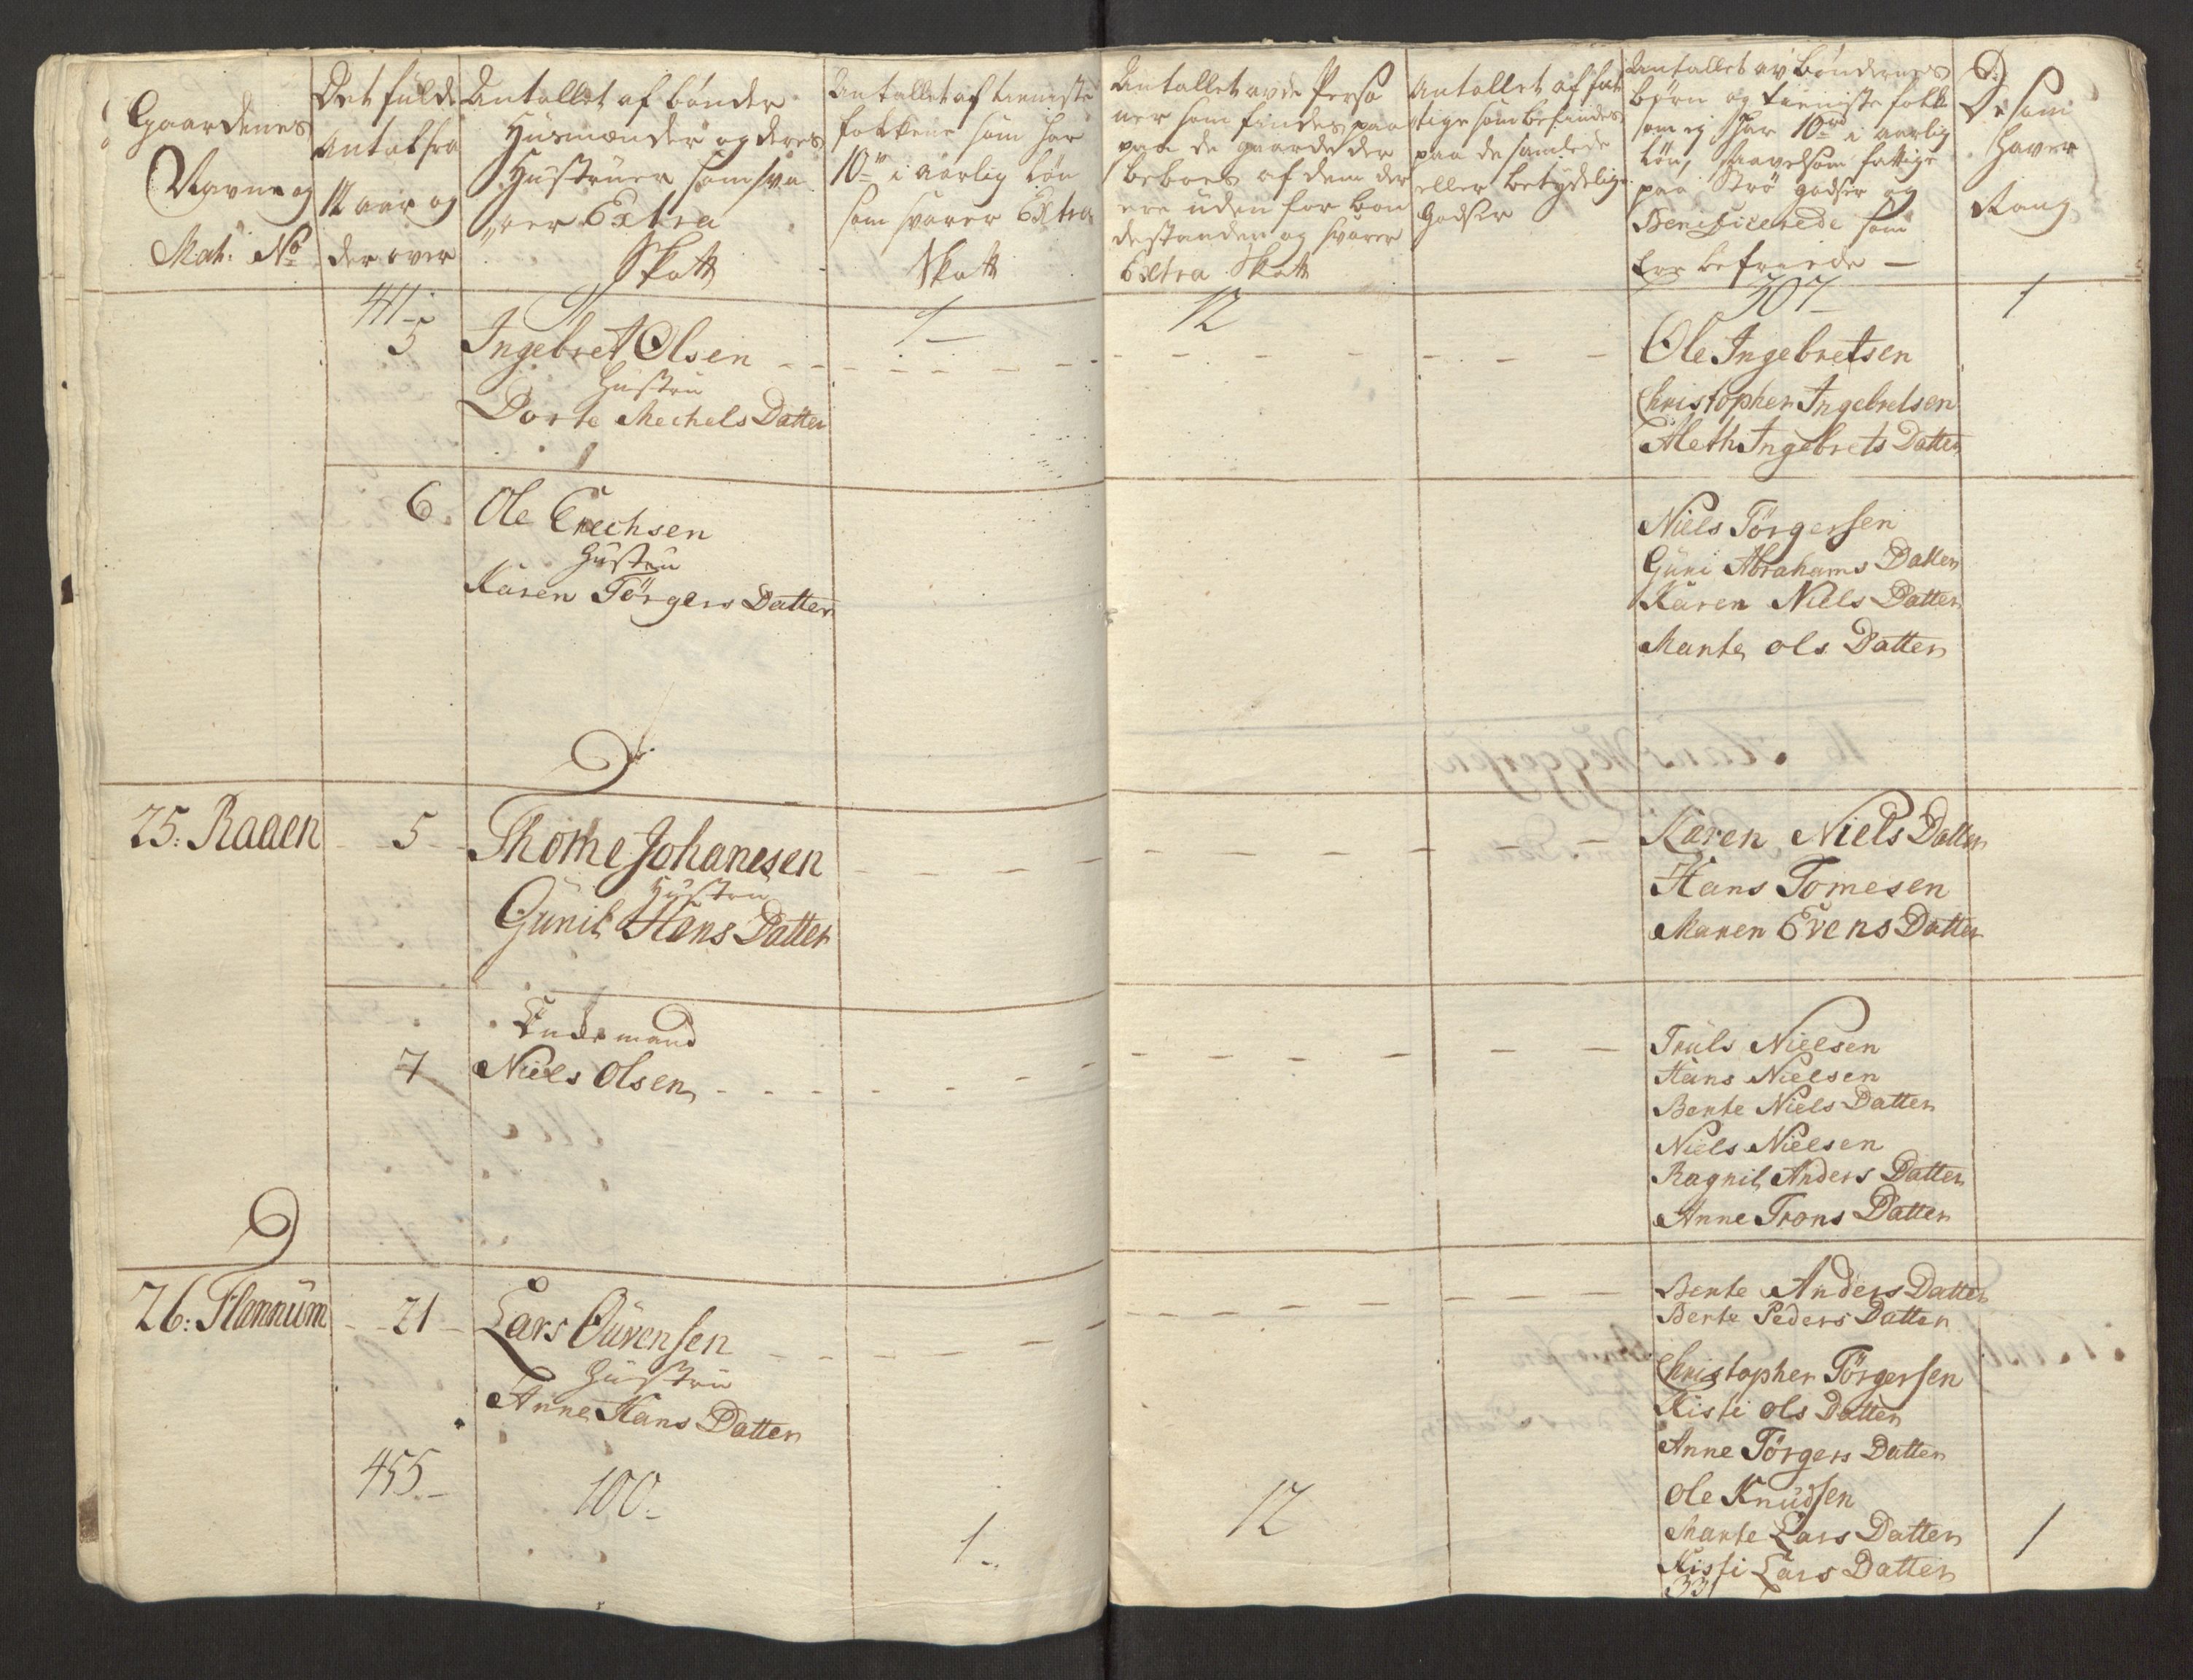 Gaardenes
Navne og
Mat: No
Det fulde
Antal fra
12 aar og
der over
Antallet af bønder
Husmænder og deres
Hustruer som sva
rer Extra
Skatt
Antallet af tieniste
folkene som har
10 rd i aarlig Løn
som svarer Extra
Skatt
Antallet av de Perso
ner som findes paa
paa de gaarde der
beboes af dem der
ere uden for bon
destanden og svarer
Extra Skatt
Antallet af fat
tige som befindes
paa de samlede
eller betydelige
Godser
Antallet av bøndernes
børn og tieniste folk
som ej har 10 rd i aarlig
Løn, saavelsom fattige
paa Strø godser og
Beneficerede som
ere befriede
De som
haver
Rang
411
1
12
307
1
5 Ingebret Olsen
Hustru
Dorte Mechels Datter
Ole Ingebretsen
Christopher Ingebretsen
Aleth Ingebrets Datter
6 Ole Erechsen
Hustru
Karen Törgers Datter
Niels Törgersen
Guni Abrahams Datter
Karen Niels Datter
Marte ols Datter
25: Raaen 5 Thome Johanesen
Hustru
Gunil Hans Datter
Karen Niels Datter
Hans Tomesen
Maren Evens Datter
Enkemand
7 Niels Olsen
Truls Nielsen
Hans Nielsen
Berte Niels Datter
Niels Nielsen
Ragnil Anders Datter
Anne Trons Datter
26: Hannum 21 Lars Ourensen
Hustru
Anne Hans Datter
Berte Anders Datter
Berte Peders Datter
Christopher Törgersen
Kisti ols Datter
Anne Törgers Datter
Ole Knudsen
Marte Lars Datter
Kisti Lars Datter
455
100
1
12
331
1